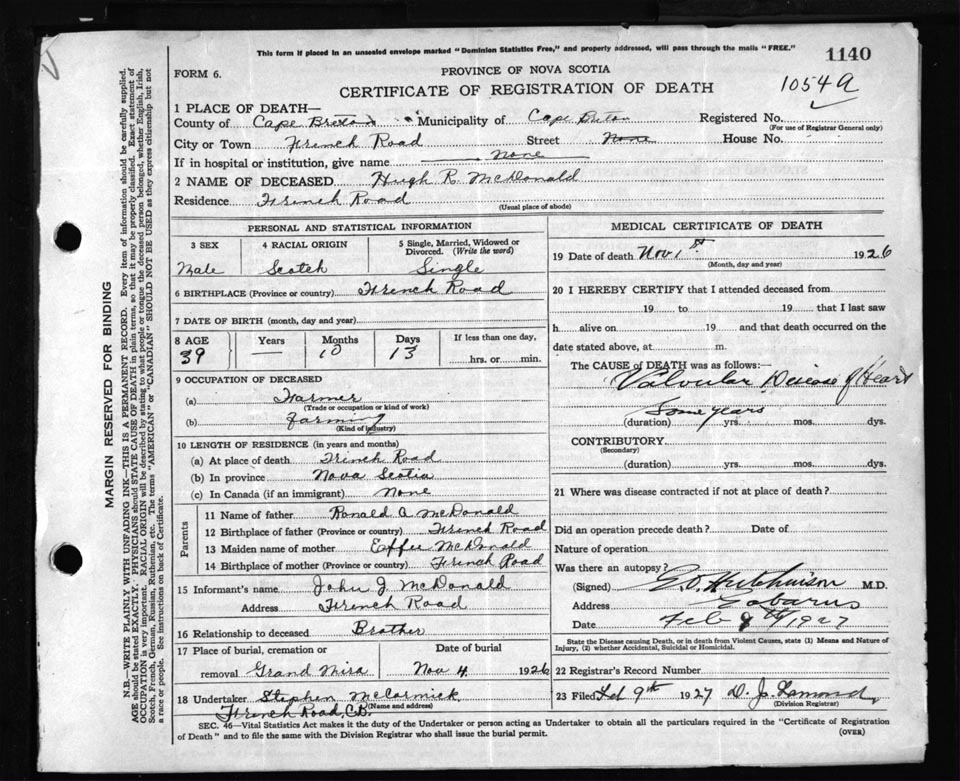 This form if placed in an unsealed envelope marked "Dominion Statistics Free," and properly addressed, will pass through the mails "FREE."
1140
FORM 6.
PROVINCE OF NOVA SCOTIA
CERTIFICATE OF REGISTRATION OF DEATH
10549
1 PLACE OF DEATH—
County of Cape Breton Municipality of Cape Breton Registered No.
(For use of Registrar General only)
City or Town French Road Street None House No.
If in hospital or institution, give name None
2 NAME OF DECEASED Hugh R. McDonald
Residence French Road
(Usual place of abode)
PERSONAL AND STATISTICAL INFORMATION
3 SEX 4 RACIAL ORIGIN 5 Single, Married, Widowed or Divorced. (Write the word)
Male Scotch Single
6 BIRTHPLACE (Province or country) French Road
7 DATE OF BIRTH (month, day and year)
8 AGE Years Months Days If less than one day,
39 — 10 13 hrs. or min.
9 OCCUPATION OF DECEASED
(a) Farmer
(Trade or occupation or kind of work)
(b) Farming
(Kind of industry)
10 LENGTH OF RESIDENCE (in years and months)
(a) At place of death French Road
(b) In province Nova Scotia
(c) In Canada (if an immigrant) None
Parents
11 Name of father Ronald A McDonald
12 Birthplace of father (Province or country) French Road
13 Maiden name of mother Effie McDonald
14 Birthplace of mother (Province or country) French Road
15 Informant's name John J McDonald
Address French Road
16 Relationship to deceased Brother
17 Place of burial, cremation or Date of burial
removal Grand Mira Nov 4 1926
18 Undertaker Stephen McCormick
(Name and address)
French Road, C.B.
MEDICAL CERTIFICATE OF DEATH
19 Date of death Nov 1st 1926
(Month, day and year)
20 I HEREBY CERTIFY that I attended deceased from
19 to 19 that I last saw
h alive on 19 and that death occurred on the
date stated above, at m.
The CAUSE of DEATH was as follows:
Valvular Disease of Heart
Some years
(duration) yrs. mos. dys.
CONTRIBUTORY
(Secondary)
(duration) yrs. mos. dys.
21 Where was disease contracted if not at place of death?
Did an operation precede death? Date of
Nature of operation
Was there an autopsy?
(Signed) G.D. Hutchinson M.D.
Address Gabarus
Date Feb 8th 1927
State the Disease causing Death, or in death from Violent Causes, state (1) Means and Nature of Injury, (2) whether Accidental, Suicidal or Homicidal.
22 Registrar's Record Number
23 Filed Feb 9th 1927 D. J. Lamond
(Division Registrar)
SEC. 46—Vital Statistics Act makes it the duty of the Undertaker or person acting as Undertaker to obtain all the particulars required in the "Certificate of Registration
of Death" and to file the same with the Division Registrar who shall issue the burial permit.
(OVER)
MARGIN RESERVED FOR BINDING
N.B.—WRITE PLAINLY WITH UNFADING INK—THIS IS A PERMANENT RECORD. Every item of information should be carefully supplied.
AGE should be stated EXACTLY. PHYSICIANS should STATE CAUSE OF DEATH in plain terms, so that it may be properly classified. Exact statement of
OCCUPATION is very important. RACIAL ORIGIN will be described by stating to what people or tongue the deceased person belonged, whether English, Irish,
Scotch, French, German, Russian, Ruthenian, etc. The terms "AMERICAN" or "CANADIAN" SHOULD NOT BE USED as they express citizenship but not
a race or people. See instructions on back of Certificate.